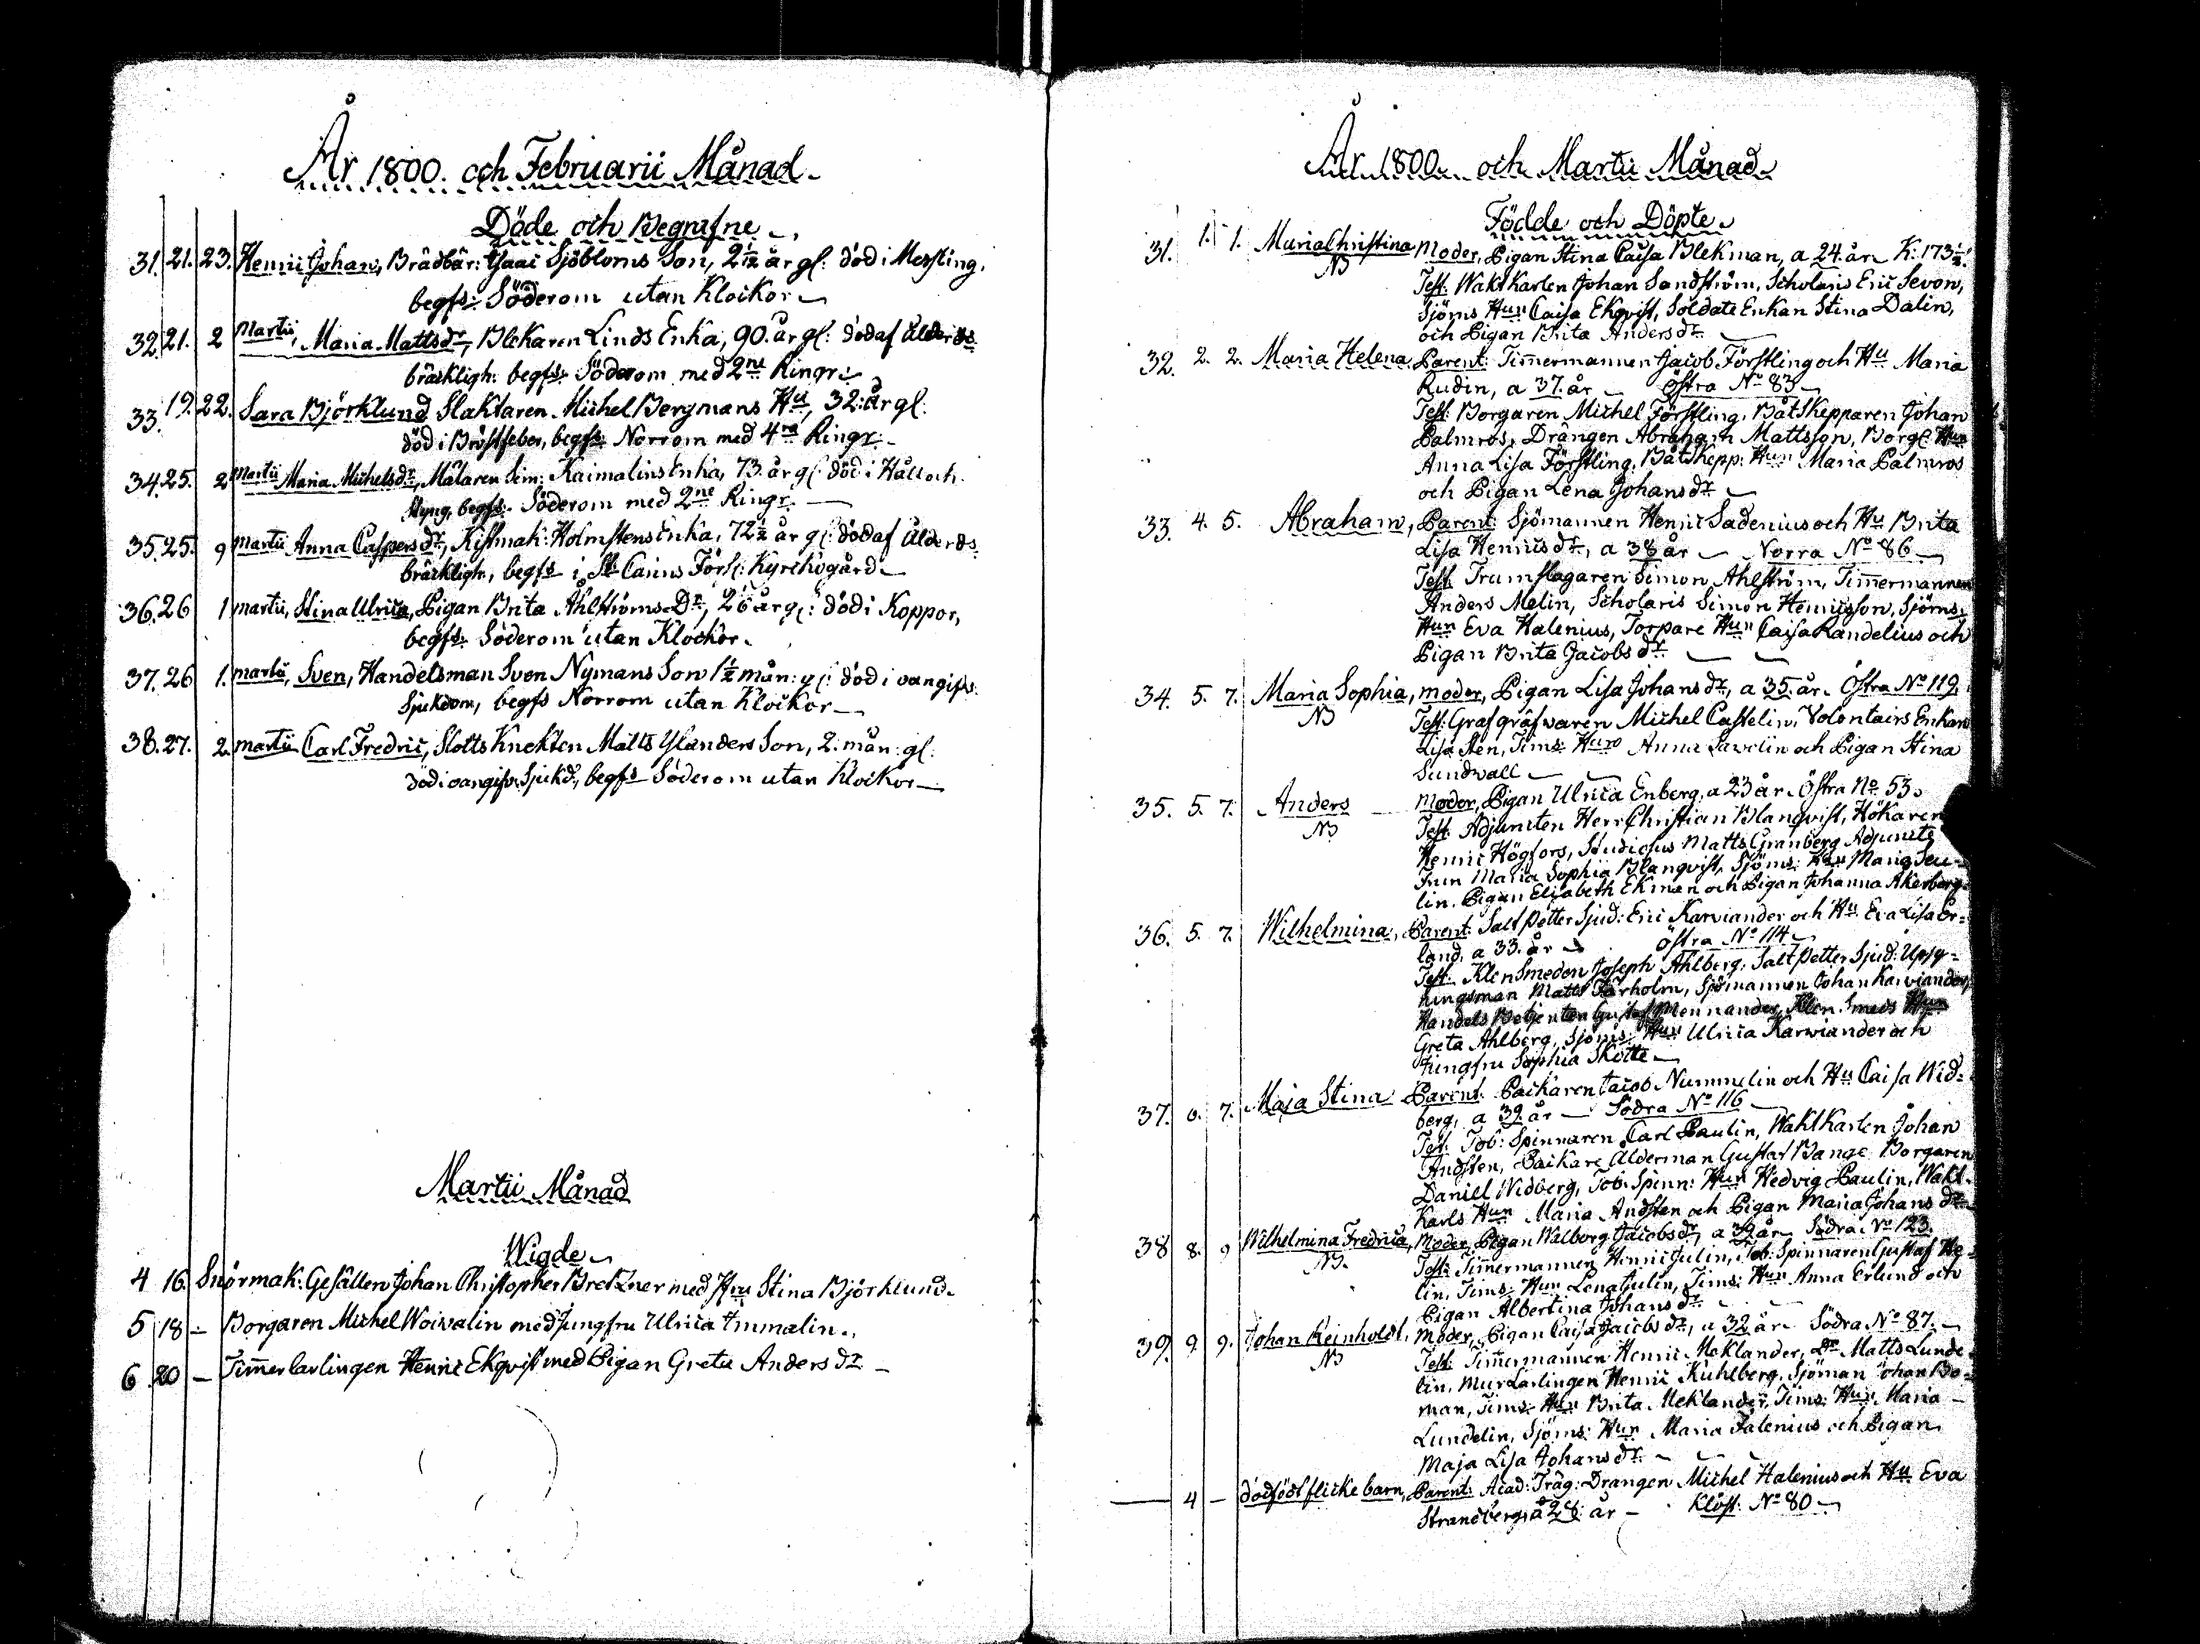 År 1800. och Februarii Månad.
Döde och Begrafne.
31. 21. 23. Henric Johan, Brädbär: Isaac Sjöbloms Son, 2½ år gl: död i Messling,
begfs: Söderom utan Klockor
32. 21. 2 Martii, Maria Mattsdr, Blekaren Linds Enka, 90. år gl: död af Ålderds
bräckligh: begfs: Söderom med 2ne Ringr:
33. 19. 22. Sara Björklund Slaktaren Michel Bergmans Hu, 32. år gl:
död i Bröstfeber, begfs: Norrom med 4ra Ringr.
34 25. 2 Martii Maria Michelsdr, Målaren Sim: Kaimalins Enka, 73. år gl: död i Håll och
Styng, begfs: Söderom med 2ne Ringr.
35. 25. 9 Martii Anna Caspersdr, Kistmak: Holmstens Enka, 72½ år gl: död af Ålderds
bräckligh:, begfs i St Carins Förs: Kyrckogård
36. 26 1 martii, Stina Ulrica, Pigan Brita Ahlströms Dr, 26 år gl: död i Koppor,
begfs: Söderom utan Klockor.
37. 26 1. martii, Sven, Handelsman Sven Nymans Son 1½ mån: gl: död i oangifv:
Sjukdom, begfs Norrom utan Klockor
38. 27. 2. martii Carl Fredric, Slotts Knekten Matts Ylanders Son, 2. mån: gl:
död i oangifv: Sjukd:, begfs Söderom utan Klockor
Martii Månad
Wigde
4 16. Snörmak: Gesällen Johan Christopher Bretzner med Jfru Stina Björklund.
5 18 – Borgaren Michel Woivalin med Jungfru Ulrica Immalin.
6 20 – Tim̄erlärlingen Henric Ekqvist med Pigan Greta Andersdr
År 1800. och Martii Månad
Födde och Döpte.
31. 1. 1. Maria Christina Moder, Pigan Stina Caisa Blekman, a 24. år K: 173½.
NB Test: Waktkarlen Johan Sandström, Scholaris Eric Sevon,
Sjöms Hun Caisa Ekqvist, Soldate Enkan Stina Dalin,
och Pigan Brita Andersdr.
32. 2. 2. Maria Helena Parent: Tim̄ermannen Jacob Förstling och Hu Maria
Rudin, a 37. år Östra No 83
Test: Borgaren Michel Förstling, Båtskepparen Johan
Palmros, Drängen Abraham Mattsson, Borg: Hun
Anna Lisa Förstling, Båtskepp: Hun Maria Palmros
och Pigan Lena Johansdr
33. 4. 5. Abraham, Parent: Sjömannen Henric Sadenius och Hu Brita
Lisa Henricsdr, a 38 år Norra No 86
Test: Trumslagaren Simon Ahlström, Tim̄ermannen
Anders Melin, Scholaris Simon Henricsson, Sjöms:
Hun Eva Halenius, Torpare Hun Caisa Randelius och
Pigan Brita Jacobsdr.
34. 5. 7. Maria Sophia, moder, Pigan Lisa Johansdr, a 35. år. Östra No 119.
NB Test: Grafgräfwaren Michel Castelin, Volontairs Enkan
Lisa Sten, Tim̄s: Hun Anna Savelin och Pigan Stina
Sundwall
35. 5. 7. Anders Moder, Pigan Ulrica Enberg, a 23 år. Östra No 53.
NB Test: Adjuncten Herr Christian Blanqvist, Hökaren
Henric Högfors, Studiosus Matts Granberg Adjuncts
Frun Maria Sophia Blanqvist, Sjöms: Hun Maria
lin. Pigan Elisabeth Ekman och Pigan Johanna Åkerberg.
36. 5. 7. Wilhelmina, Parent: Saltpetter Sjud: Eric Karviander och Hu Eva Lisa Er=
land, a 33. år Östra No 114
Test: Klensmeden Joseph Ahlberg, Saltpetter Sjud: Upsy=
ningsman Matts Färholm, Sjömannen Johan Karviander,
Handels Betjenten Gustaf Mennander, Klen Smeds Hun
Greta Ahlberg, Sjöms: Hun Ulrica Karwiander och
Jungfru Sophia Skotte
37. 6. 7. Maja Stina Parent: Packaren Jacob Nummelin och Hu Caisa Wid=
berg, a 39. år Södra No 116
Test: Tob: Spinnaren Carl Paulin, Waktkarlen Johan
Andsten, Packare Ålderman Gustaf Bange Borgaren
Daniel Widberg, Tob: Spinn: Hun Hedvig Paulin, Wakt=
karls Hun Maria Andsten och Pigan Maria Johansdr
38 8. 9 Wilhelmina Fredrica, Moder, Pigan Walborg Jacobsdr, a 39 år Södra No 123.
NB. Test: Tim̄ermannen Henric Julin, Tob: Spinnaren Gustaf He=
lin, Tim̄s: Hun Lena Julin, Tim̄s: Hun Anna Erlund och
Pigan Albertina Johansdr.
39. 9. 9. Johan Reinholdt, Moder, Pigan Caisa Jacobsdr, a 32 år Södra No 87.
NB Test: Tim̄ermannen Henric Meklander, Do Matts Lunde=
lin, Murlärlingen Henric Kuhlberg, Sjöman Johan Bo=
man, Tim̄s: Hun Brita Meklander, Tim̄s: Hun Maria
Lundelin, Sjöms: Hun Maria Falenius och Pigan
Maja Lisa Johansdr
4 – dödfödt flicke barn, Parent: Acad: Träg: Drängen Michel Halenius och Hu Eva
Strandberg, a 28 år – Klöst: No 80